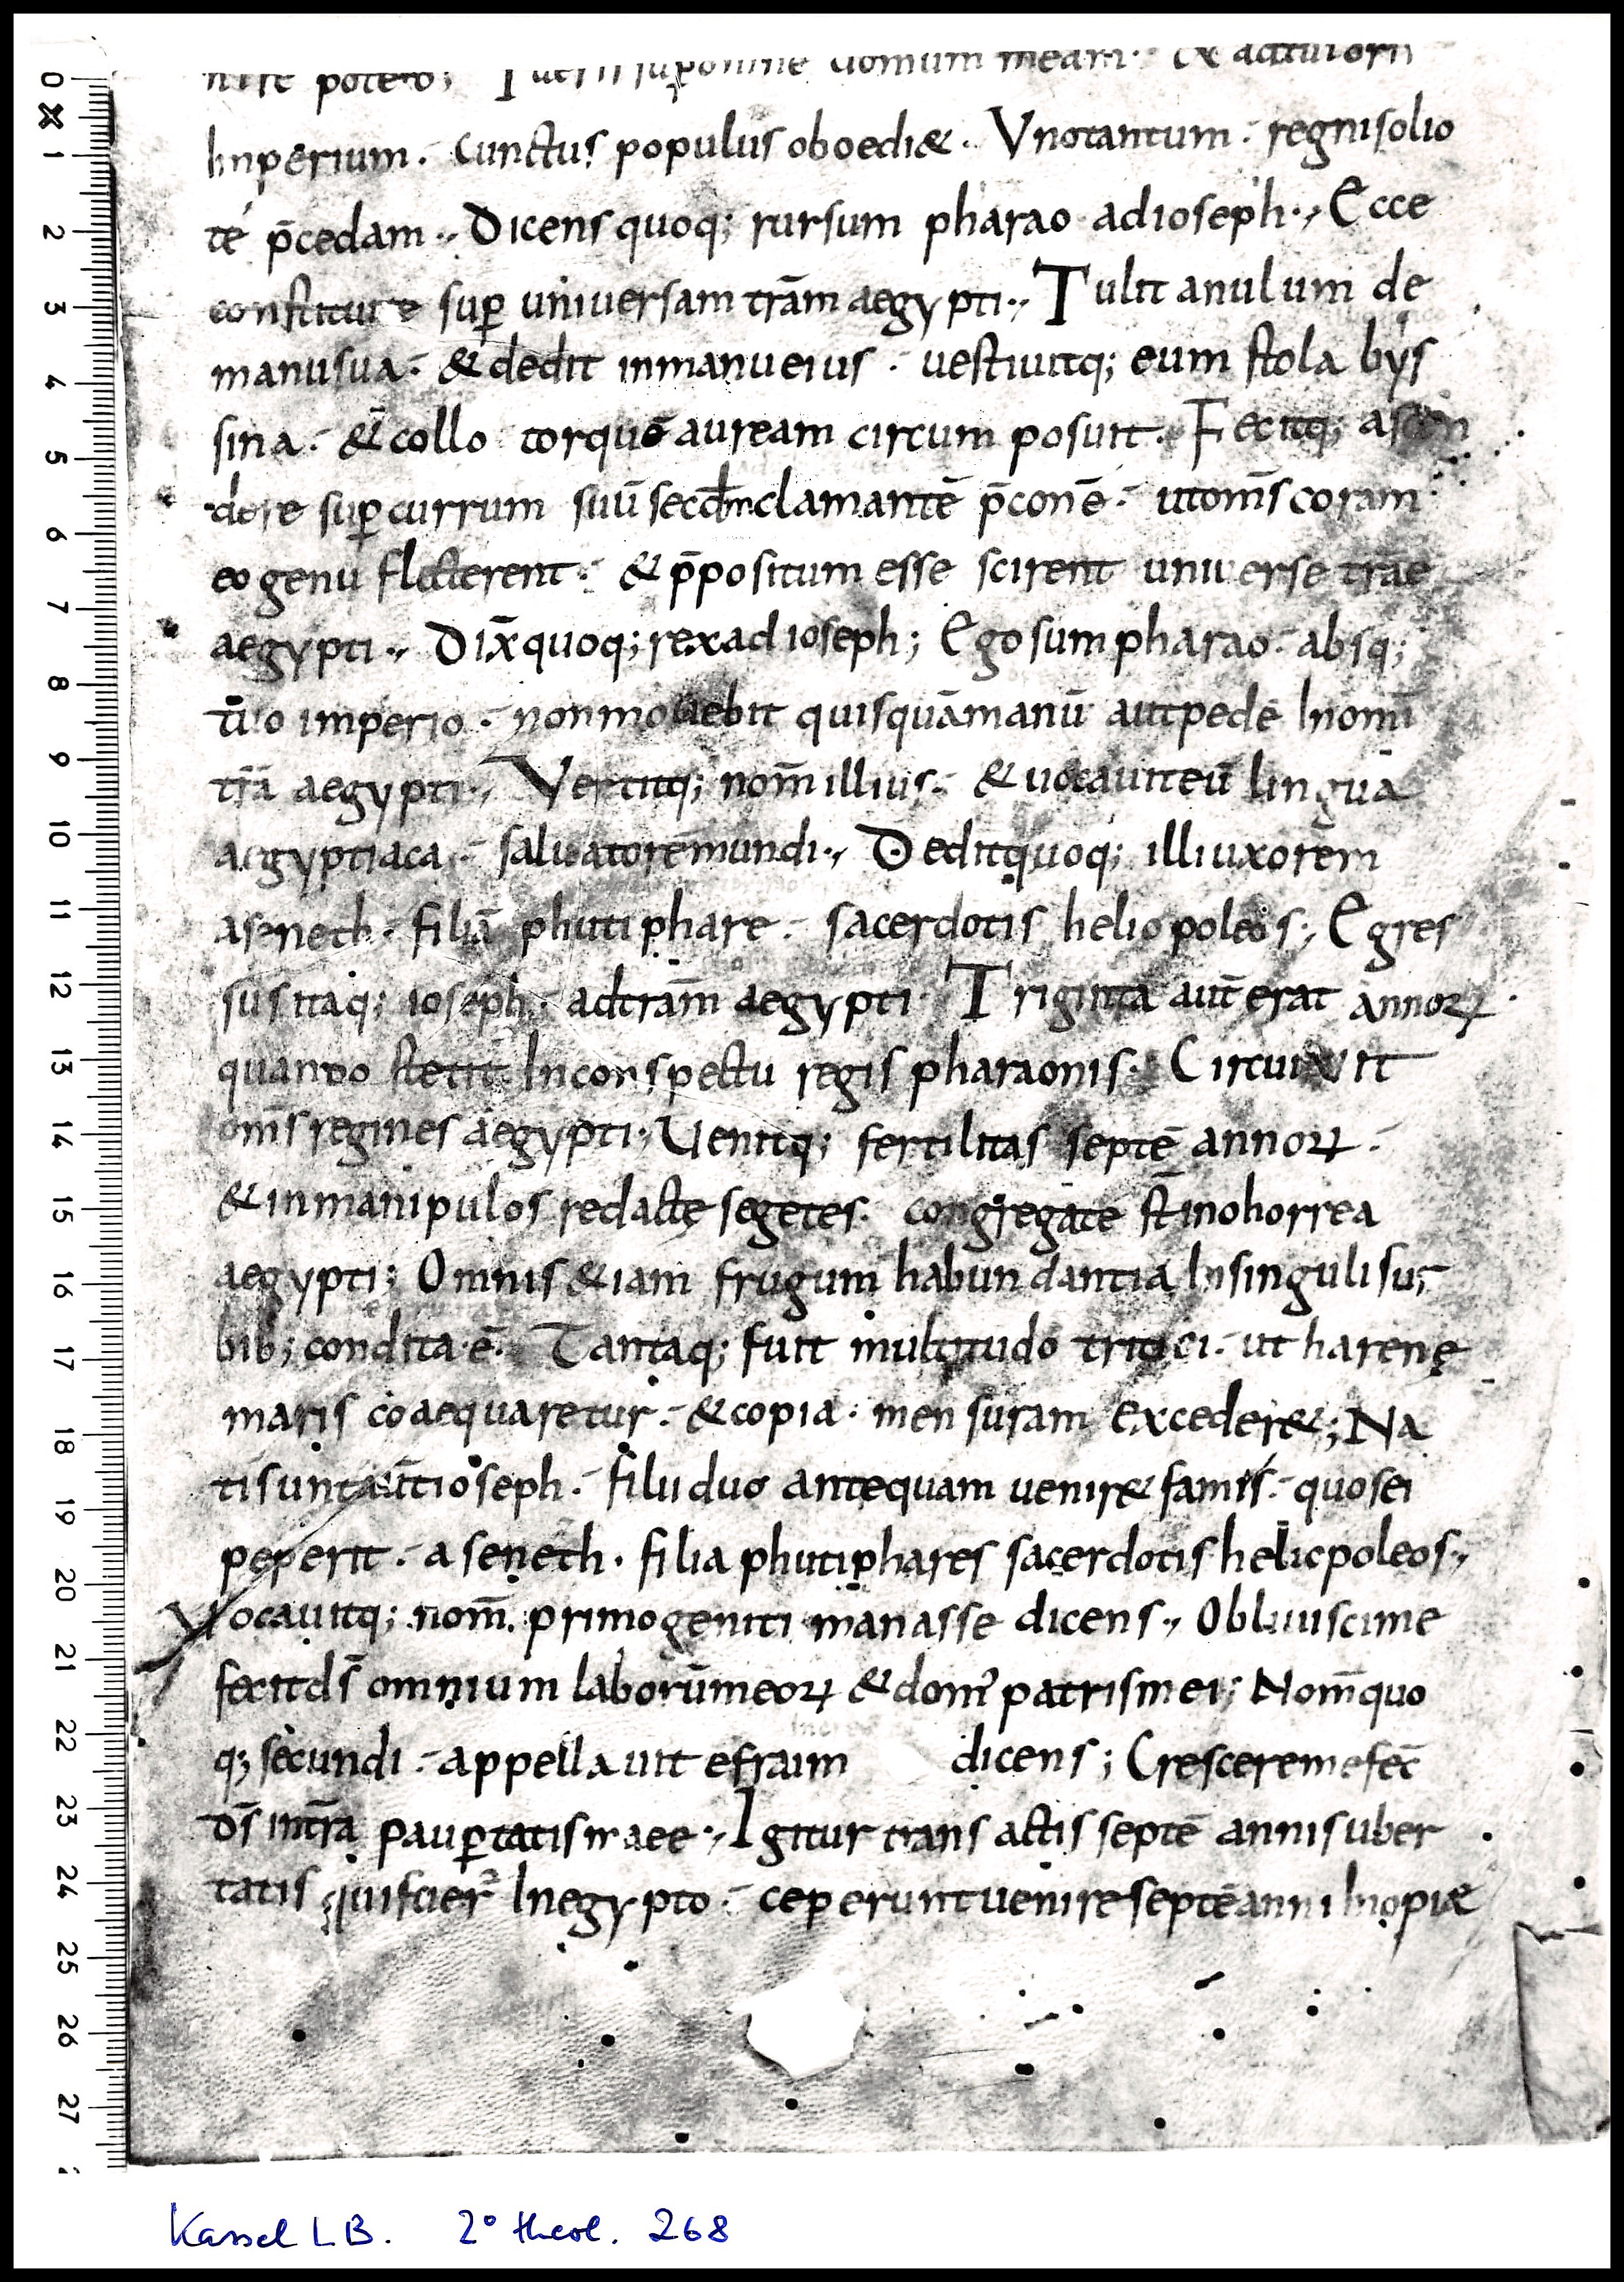 nire potero; Tu eris sup domum meam· & adtui oris
Inperium· cunctus populus oboedi&· Vno tantum· regni solio
te p̄cedam·, Dicens quoq; rursum pharao ad ioseph·, Ecce
constitui te sup̱ universam trām aegypti·, Tulit anulum de
manu sua· & dedit in manu eius· vestivitq; eum stola bys
sina· & collo torquē auream circum posuit· Fecitq; ascen
dere sup̱ currum suū secdm clamantē p̄conē· ut om̄s coram
eo genu flecterent· & p̄positum esse scirent universe trāe
aegypti·, Dix̄ quoq; rex ad ioseph; Ego sum pharao· absq;
tuo imperio· non movebit quisquā manū aut pedē In om̄i
trā aegypti·, Vertitq; nom̄ illius· & vocavit eū linguā
aegyptiaca· salvatorē mundi·, Dedit quoq; illi uxorem
aseneth· filiā phutiphare· sacerdotis heliopoleos·, Egres
sus itaq; ioseph· ad trām aegypti· Triginta aut̄ erat annoꝝ
quando stetit In conspectu regis pharaonis· Circuivit
om̄s regiones aegypti·, Venitq; fertilitas septē annoꝝ·
& in manipulos redactę segetes· congregate st̄ in ohorrea
aegypti; Omnis &iam frugum habundantia In singulis ur
bib; condita ē· Tantaq; fuit multitudo tritici· ut harenę
maris coaequaretur· & copia· mensuram exceder&; Na
ti sunt aut̄ ioseph· filii duo antequam venir& famis· quos ei
peperit· aseneth· filia phutiphares sacerdotis heliopoleos·,
Vocavitq; nom̄ primogeniti manasse dicens·, Oblivisci me
fecit dś omnium laborū meoꝝ & dom̉ patris mei; Nom̄ quo
q; secundi· appellavit efraim dicens; Crescere me fec̄
dś in trā paup̱tatis maee·, Igitur transactis septē annis uber
tatis qui fuer̉ In egypto· ceperunt venire septē anni Inopiæ
0 1 2 3 4 5 6 7 8 9 10 11 12 13 14 15 16 17 18 19 20 21 22 23 24 25 26 27
Kassel LB. 2° theol. 268